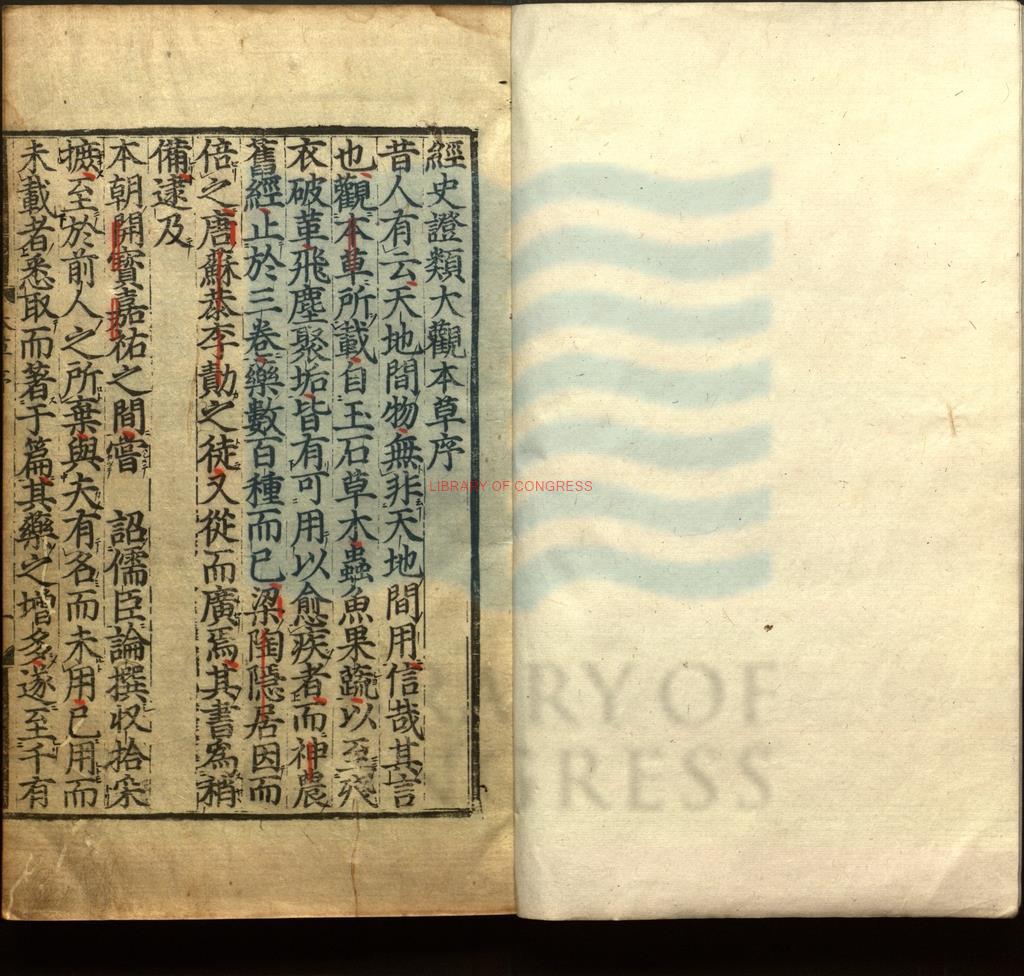 經史證類大觀本草序
昔人有云天地間物無非天地間用信哉其言
也觀本草所載自玉石草木蟲魚果蔬以至殘
衣破革飛塵聚垢皆有可用以愈疾者而神農
舊經止於三卷藥數百種而已梁陶隱居因而
倍之唐蘇恭李勣之徒又從而廣焉其書爲稍
備逮及
本朝開寶嘉祐之間嘗 詔儒臣論撰収拾采
摭至於前人之所棄與夫有名而未用已用而
未載者悉取而著于篇其藥之増多遂至千有
LIBRARY OF CONGRESS
LIBRARY OF
CONGRESS